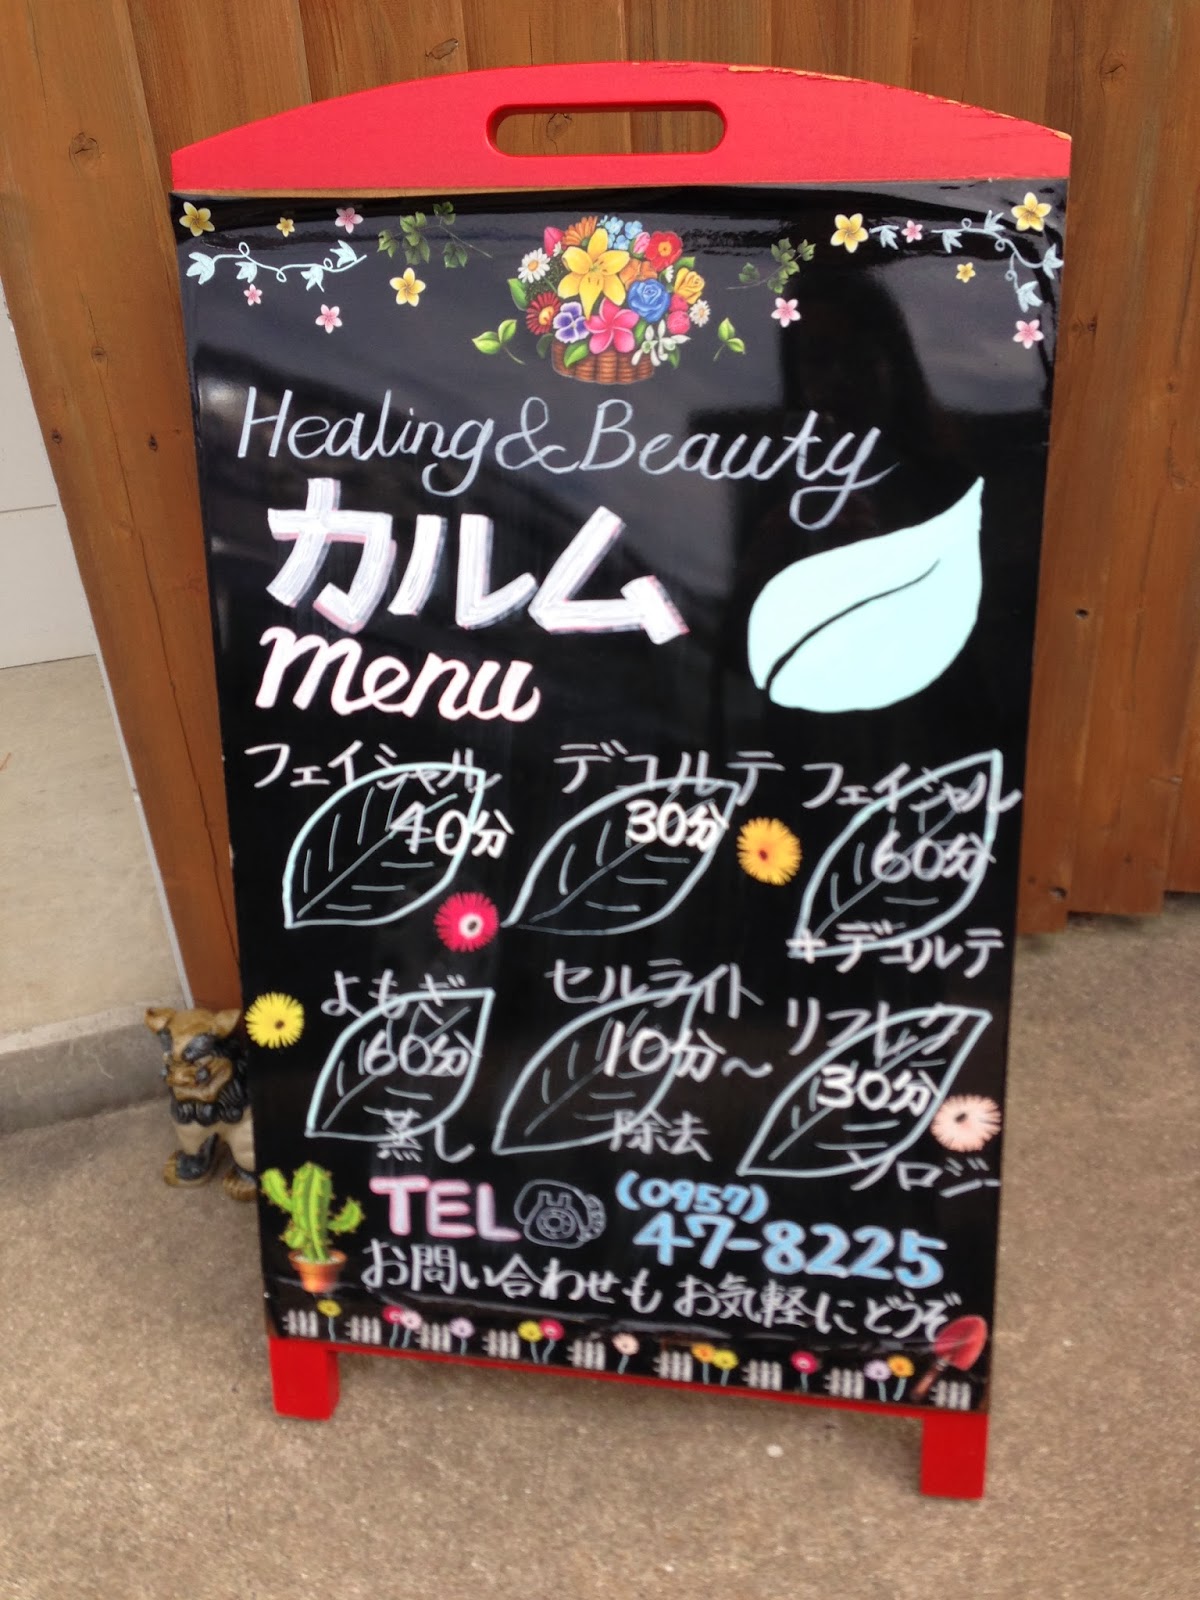 Healing&Beauty
カルム
menu
フェイシャル
40分
デコルテ
30分
フェイシャル
60分
+デコルテ
よもぎ
60分
蒸し
セルライト
10分～
除去
リフレク
30分
ソロジー
TEL (0957)
47-8225
お問い合わせも お気軽にどうぞ